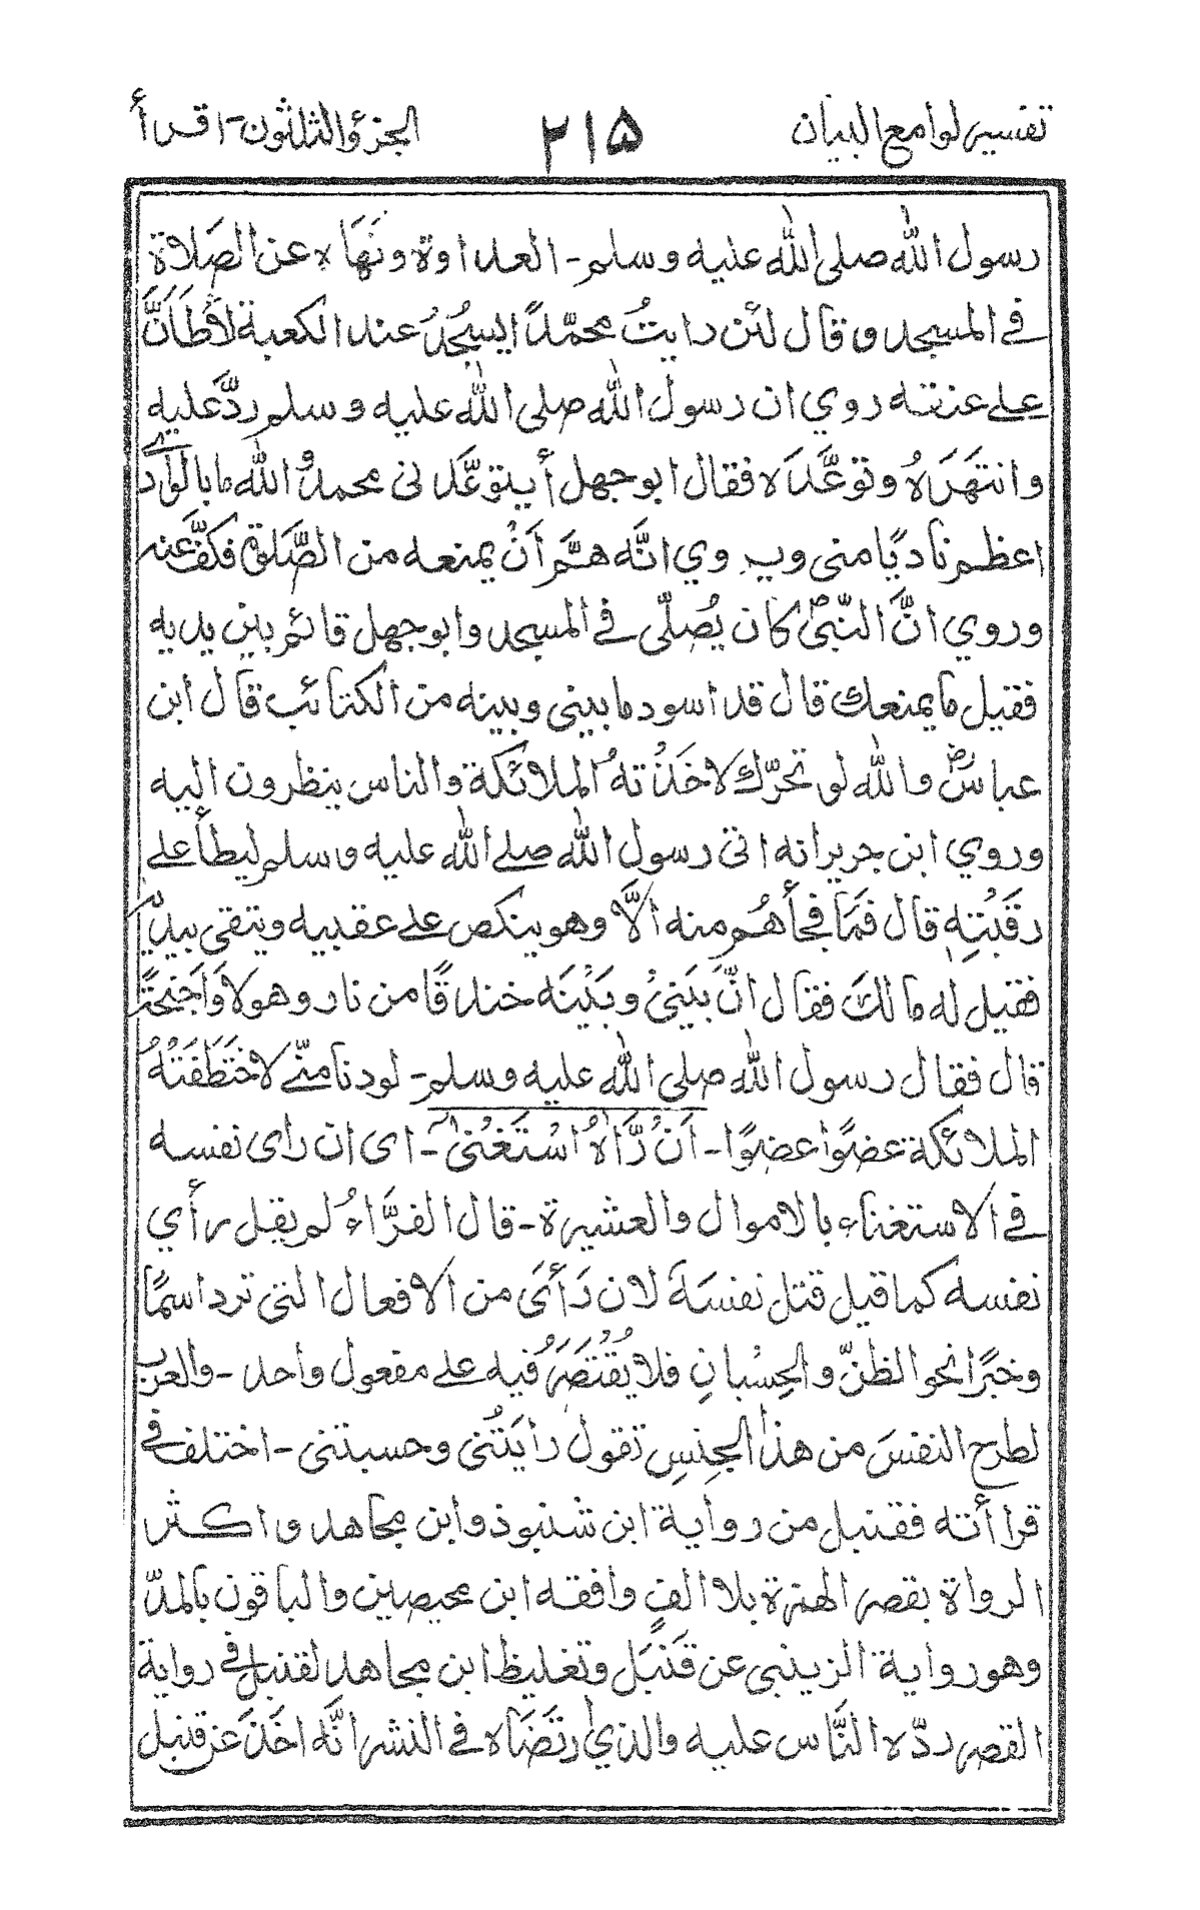 تفسير لوامع البيان ٢١٥ الجزؤ الثلثون - اقرأ
رسول الله صلى الله عليه وسلم - العداوة ونَهَاه عن الصَلاة
في المسجد و قال لئن رايتُ محمّدًا يسجُدُ عند الكعبة لأطَأَنَّ
على عنقه روي ان رسول الله صلى الله عليه وسلم ردَّ عليه
وانتهَرَهُ وتوعَّدَه فقال ابو جهل أيتوعَّدنى محمدٌ والله ما بالوادى
اعظم ناديًا منى ويروي انَّه همَّ أنْ يمنعه من الصَّلوة فكفَّ عنه
وروي انَّ النّبيَّ كان يُصلّى في المسجد وابو جهل قائم بين يديه
فقيل ما يمنعك قال قد اسود ما بيني وبينه من الكتائب قال ابن
عباسؓ والله لو تحرّك لاخَذتهُ الملائكة والناس ينظرون اليه
وروي ابن جريرانه اتى رسول الله صلى الله عليه وسلم ليطأ على
رقَبَتِهٖ قال فمَا فجأهُم منه الَّا وهو ينكص على عقبيه ويتقى بيديه
فقيل له مالكَ فقال انَّ بَينيْ وبَيْنَه خندقًا من نار وهولا وَاَجنحَةً
قال فقال رسول الله صلى الله عليه وسلم - لو دنا منّى لاخْتَطَفَتْهُ
الملائكة عضوًا عضوًا - اَنْ رَّاٰهُ اسْتَغْنٰى - اى ان راى نفسه
في الاستغناء بالاموال والعشيرة - قال الفرَّاءُ لم يقل رأي
نفسه كما قيل قتل نفسَهَ لان رَأىَ من الافعال التى ترد اسمًا
وخبرًا نحو الظنّ والحِسْبانِ فلا يُقْتَصَرُ فيه على مفعول واحد - والعرب
لطرح النفسَ من هذا الجِنسِ تقول رايتُنى وحسبتنى - اختلف في
قراأته فقنبل من رواية ابن شنبوذ وابن مجاهد واكثر
الرواة بقصر الهمزة بلا الفٍ وافقه ابن محيصين والباقون بالمدّ
وهو رواية الزينبى عن قَنْبَل وتغليظ ابن مجاهد لقنبل في رواية
القصر ردّه النَّاس عليه والذى ارتَضَاه في النشر انَّه اخَذَ عن قنبل